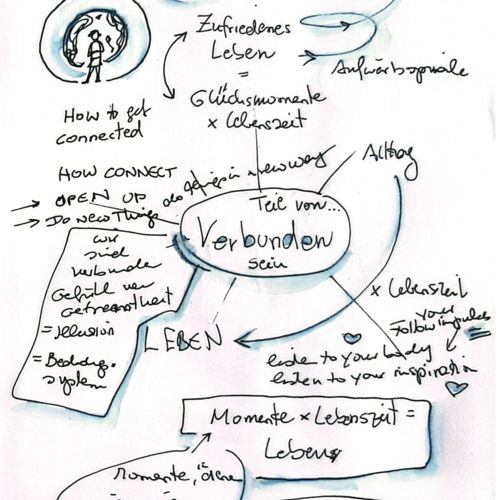 Zufriedenes
Leben
=
Glücksmomente
x Lebenszeit
Aufwärtsspirale
How to get
connected
HOW CONNECT
→ OPEN UP
→ DO NEW Things
do things in a new way
Alltag
Teil von...
Verbunden
sein
wir
sind
verbunden
Gefühl von
Getrenntheit
= Illusion
system
x Lebenszeit
LEBEN
Follow your impulse
listen to your body
listen to your inspiration
Momente x Lebenszeit =
Leben
Momente,